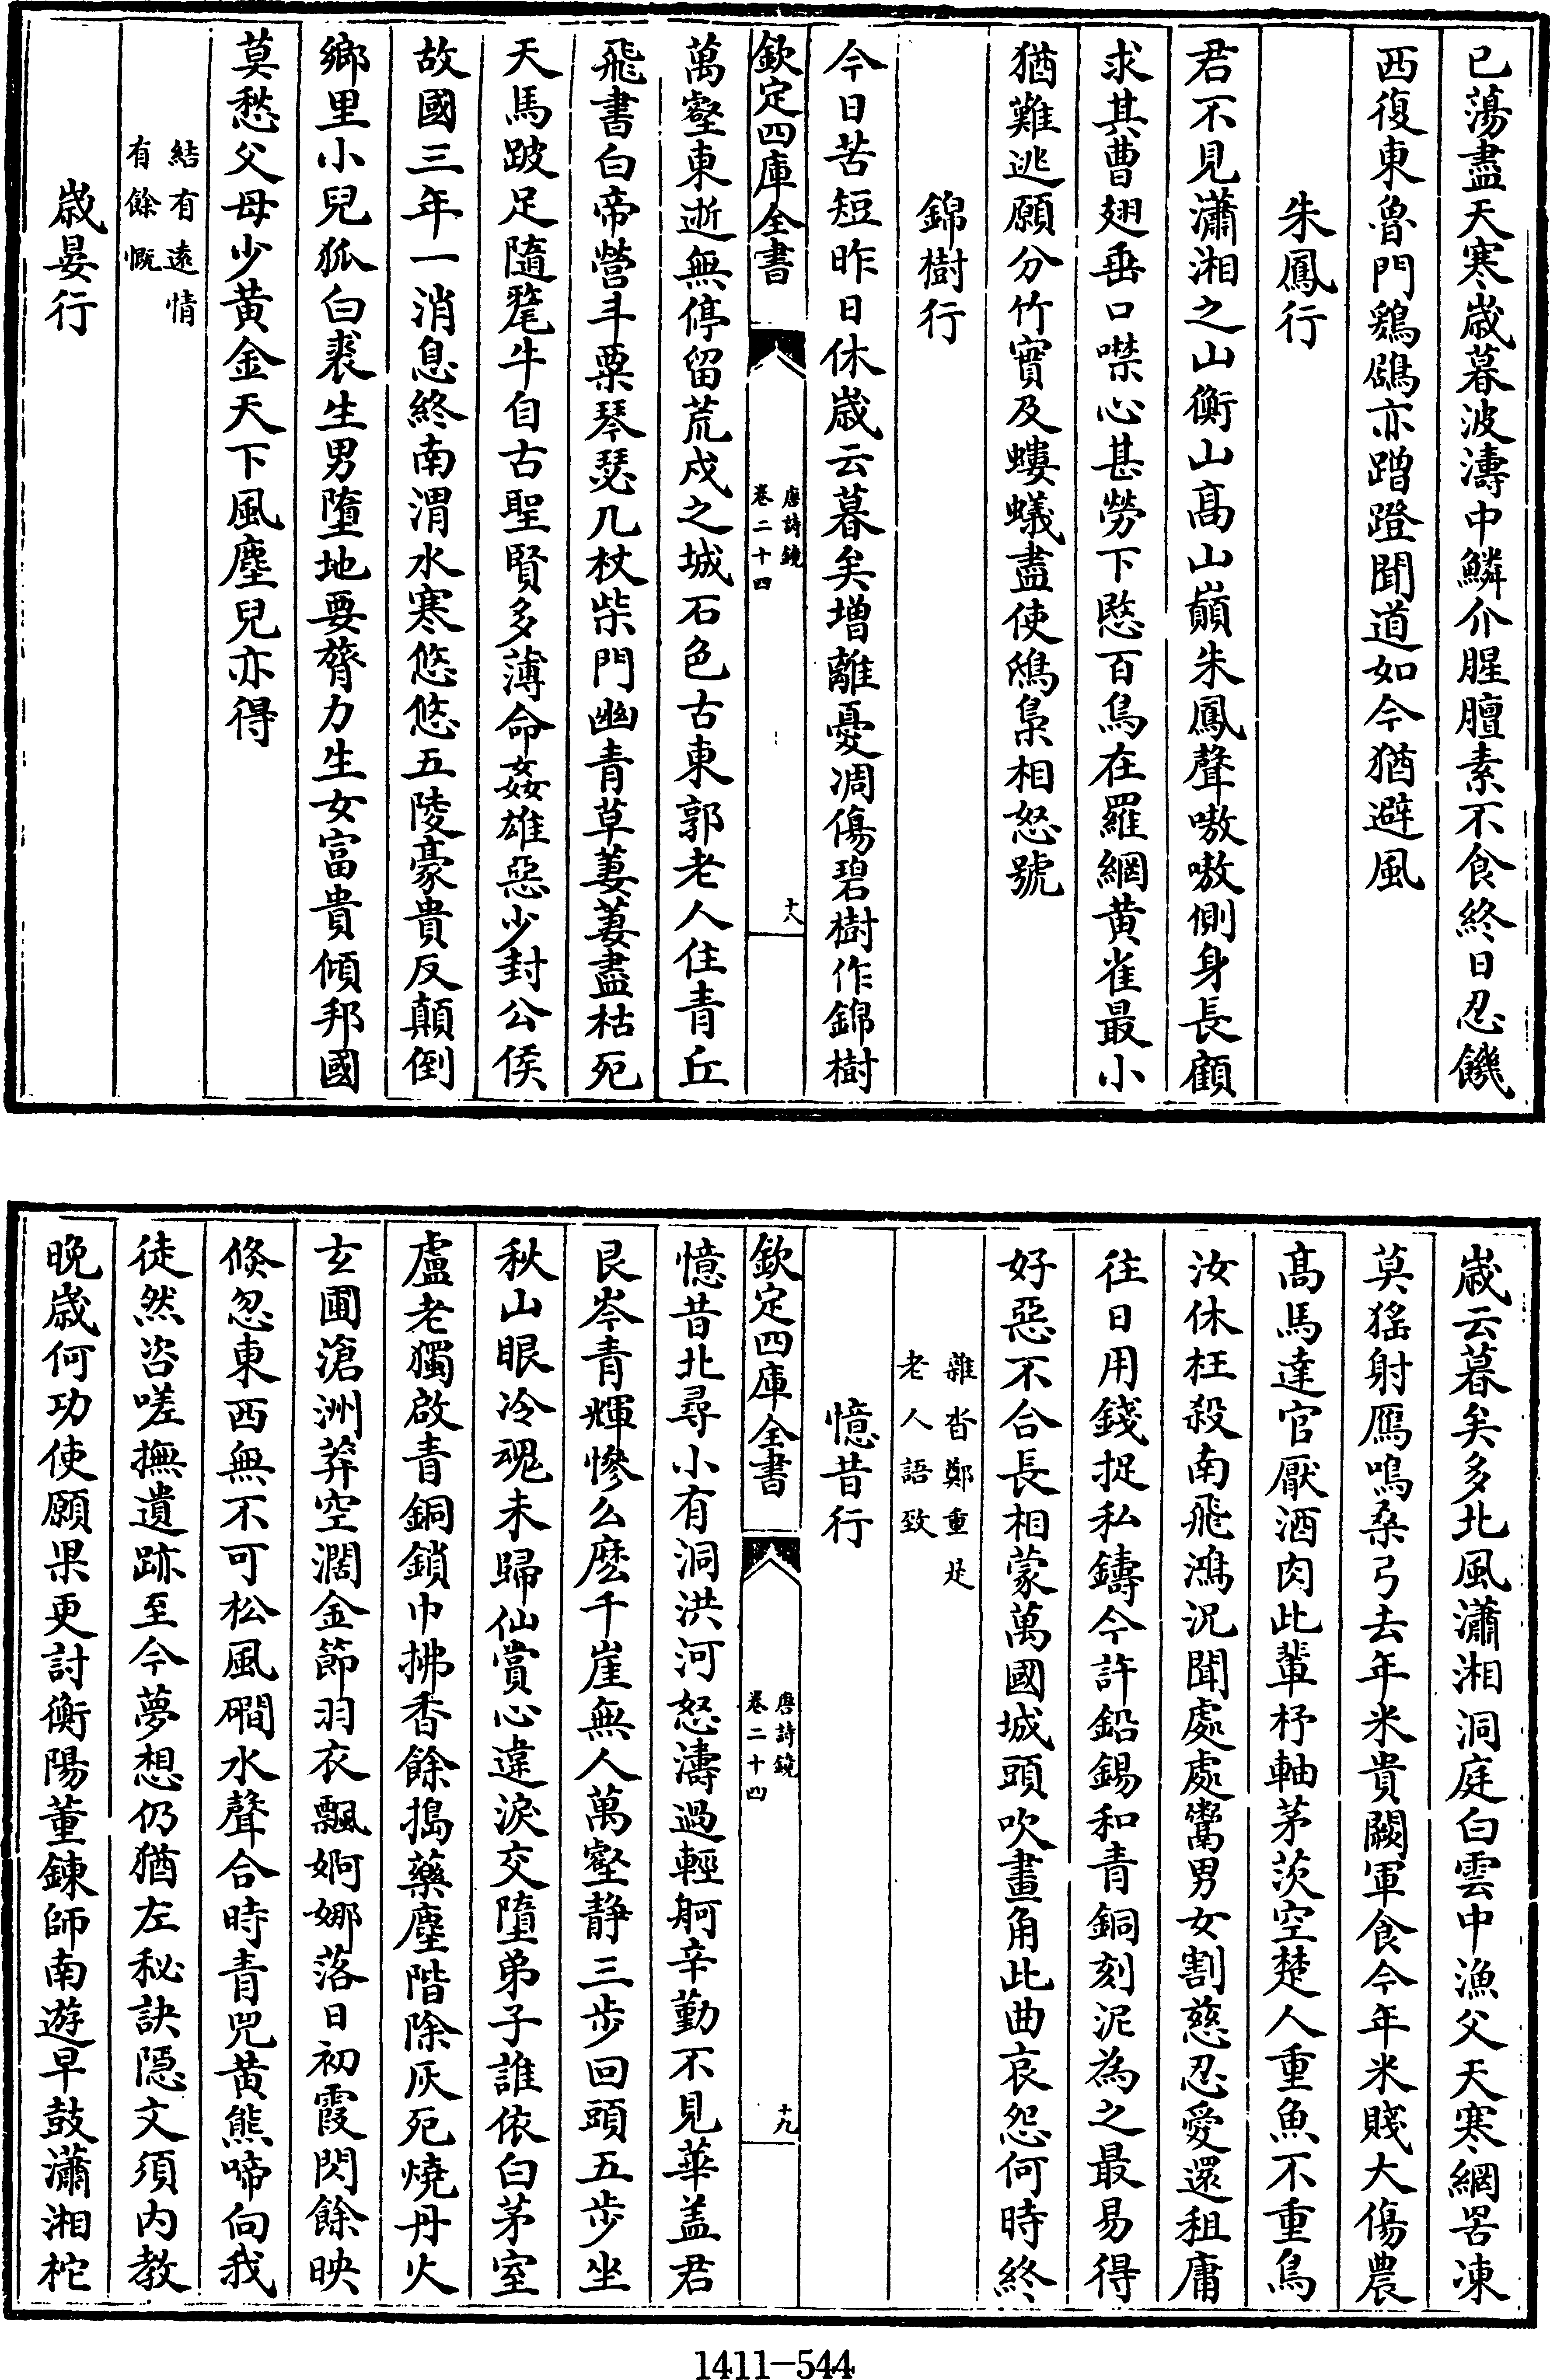 已蕩盡天寒歲暮波濤中鱗介腥膻素不食終日忍饑
西復東魯門鷄鶋亦蹭蹬聞道如今猶避風
朱鳳行
君不見瀟湘之山衡山髙山巔朱鳳聲嗷嗷側身長顧
求其曹翅垂口噤心甚勞下愍百鳥在羅網黄雀最小
猶難逃願分竹實及螻蟻盡使鴟梟相怒號
錦樹行
今日苦短昨日休歲云暮矣増離憂凋傷碧樹作錦樹
欽定四庫全書
唐詩鏡
卷二十四
十八
萬壑東逝無停留荒戍之城石色古東郭老人住青丘
飛書白帝營斗粟琴瑟几杖柴門幽青草萋萋盡枯死
天馬跛足隨氂牛自古聖賢多薄命姦雄惡少封公侯
故國三年一消息終南渭水寒悠悠五陵豪貴反顛倒
鄉里小兒狐白裘生男墮地要膂力生女富貴傾邦國
莫愁父母少黄金天下風塵兒亦得
結有遠情
有餘慨
歲晏行
歲云暮矣多北風瀟湘洞庭白雲中漁父天寒網罟凍
莫猺射鴈鳴桑弓去年米貴闕軍食今年米賤大傷農
髙馬達官厭酒肉此輩杼軸茅茨空楚人重魚不重鳥
汝休枉殺南飛鴻况聞處處鬻男女割慈忍愛還租庸
往日用錢捉私鑄今許鉛錫和青銅刻泥為之最易得
好惡不合長相蒙萬國城頭吹畫角此曲哀怨何時終
雜沓鄭重是
老人語致
憶昔行
欽定四庫全書
唐詩鏡
卷二十四
十九
憶昔北尋小有洞洪河怒濤過輕舸辛勤不見華盖君
艮岑青輝慘么麽千崖無人萬壑静三步回頭五步坐
秋山眼冷魂未歸仙賞心違淚交墮弟子誰依白茅室
盧老獨啟青銅鎖巾拂香餘搗藥塵階除灰死燒丹火
玄圃滄洲莽空濶金節羽衣飄婀娜落日初霞閃餘映
倏忽東西無不可松風磵水聲合時青兕黄熊啼向我
徒然咨嗟撫遺跡至今夢想仍猶左秘訣隱文須内教
晚歲何功使願果更討衡陽董鍊師南遊早鼓瀟湘柁
1411—544